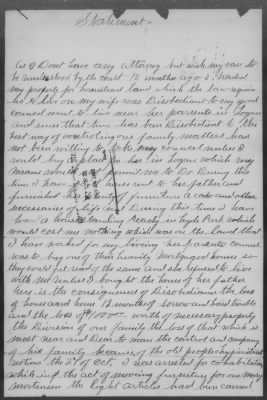 Statement.
As I Dont have any attorney but wish my case to
be understood by the court 13 months ago I traded
my property for homestead land which the law requires
me to live on my wife was Disobedient to my good
council went to live near her parrents in Logan
and since that time has been Disobedient to the
best way of controling our family matters has
not been willing to take my council unless I
would buy a place for her in Logan which my
means would not permit me to Do During this
time I have paid house rent to her father and
furnished her plenty of furniture a cow and other
necessaries of life and During this time I have
had a house standing Ready in Hyde Park which
would cost me nothing which was on the land that
I have worked for my living her parents council
was to buy one of their heavily mortgaged houses so
they could get rid of the same and she refused to live
with me unless I bought the home of her father
here is the consequences of disobedience the loss
of house and home 13 months of sorrow and hard trouble
and the loss of $ worth of necessary property
the Division of our family the loss of that which is
most near and Dear to man the control and company
of his family because of the old people's hypnotised
notions the of Oct I was arrested for cohabitation
while in the act of moving furniture for one mary
mortensen the light articles had been carried